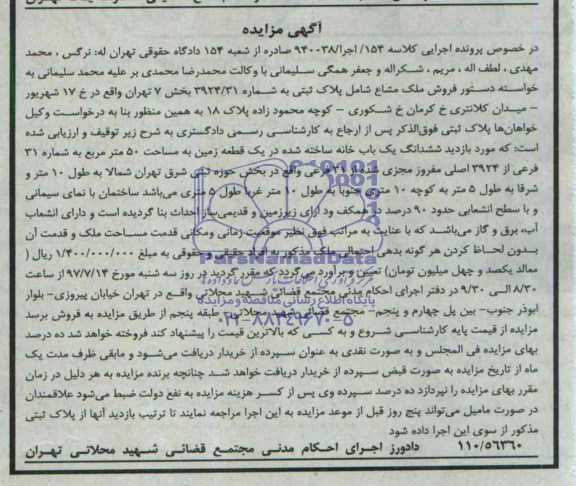 آگهی مزایده
در خصوص پرونده اجرایی کلاسه ۱۵۴/ اجرا/۹۴۰۰۳۸ صادره از شعبه ۱۵۴ دادگاه حقوقی تهران له: نرگس ، محمد
مهدی ، لطف اله ، مریم ، شکراله و جعفر همگی سلیمانی با وکالت محمدرضا محمدی بر علیه محمد سلیمانی به
خواسته دستور فروش ملک مشاع شامل پلاک ثبتی به شماره ۳۹۲۴/۳۱ بخش ۷ تهران واقع در خ ۱۷ شهریور
– میدان کلانتری خ کرمان خ شکوری – کوچه محمود زاده پلاک ۱۸ به همین منظور بنا به درخواست وکیل
خواهان‌ها پلاک ثبتی فوق‌الذکر پس از ارجاع به کارشناسی رسمی دادگستری به شرح زیر توقیف و ارزیابی شده
است: که مورد بازدید ششدانگ یک باب خانه ساخته شده در یک قطعه زمین به مساحت ۵۰ متر مربع به شماره ۳۱
فرعی از ۳۹۲۴ اصلی مفروز مجزی شده از فرعی واقع در بخش حوزه ثبتی شرق تهران شمالا به طول ۱۰ متر و
شرقا به طول ۵ متر به کوچه ۱۰ متری جنوبا به طول ۱۰ متر غربا طول ۵ متری می‌باشد ساختمان با نمای سیمانی
و با سطح انشعابی حدود ۹۰ درصد در همکف ود ارای زیرزمین و قدیمی‌ساز احداث بنا گردیده است و دارای انشعاب
آب، برق و گاز می‌باشد که با عنایت به مراتب فوق نظیر موقعیت زمانی ومکانی قدمت مساحت ملک و قدمت آن
بدون لحاظ کردن هر گونه بدهی احتمالی ملک مذکور به افراد حقیقی و حقوقی به مبلغ ۱/۴۰۰/۰۰۰/۰۰۰ ریال (
معادل یکصد و چهل میلیون تومان) تعیین و برآورد می‌گردد که مقرر گردید در روز سه شنبه مورخ ۹۷/۷/۱۴ از ساعت
۸/۳۰ الی ۹/۳۰ در دفتر اجرای احکام مدنی مجتمع قضائی شهید محلاتی واقع در تهران خیابان پیروزی- بلوار
ابوذر جنوب- بین پل چهارم و پنجم- مجتمع قضائی شهید محلاتی - طبقه پنجم از طریق مزایده به فروش برسد
مزایده از قیمت پایه کارشناسی شروع و به کسی که بالاترین قیمت را پیشنهاد کند فروخته خواهد شد ده درصد
بهای مزایده فی المجلس و به صورت نقدی به عنوان سپرده از خریدار دریافت می‌شود و مابقی ظرف مدت یک
ماه از تاریخ مزایده به صورت قبض سپرده از خریدار دریافت خواهد شد چنانچه برنده مزایده به هر دلیل در زمان
مقرر بهای مزایده را نپردازد ده درصد سپرده وی پس از کسر هزینه مزایده به نفع دولت ضبط می‌شود علاقمندان
در صورت مامیل می‌تواند پنج روز قبل از موعد مزایده به این اجرا مراجعه نمایند تا ترتیب بازدید آنها از پلاک ثبتی
مذکور از سوی این اجرا داده شود
۱۱۰/۵۶۳۶۰ دادورز اجرای احکام مدنی مجتمع قضائی شهید محلاتی تهران
ParsNamadData
پایگاه اطلاع رسانی مناقصه و مزایده
۰۲۱-۸۸۳۴۹۶۷۰-۵